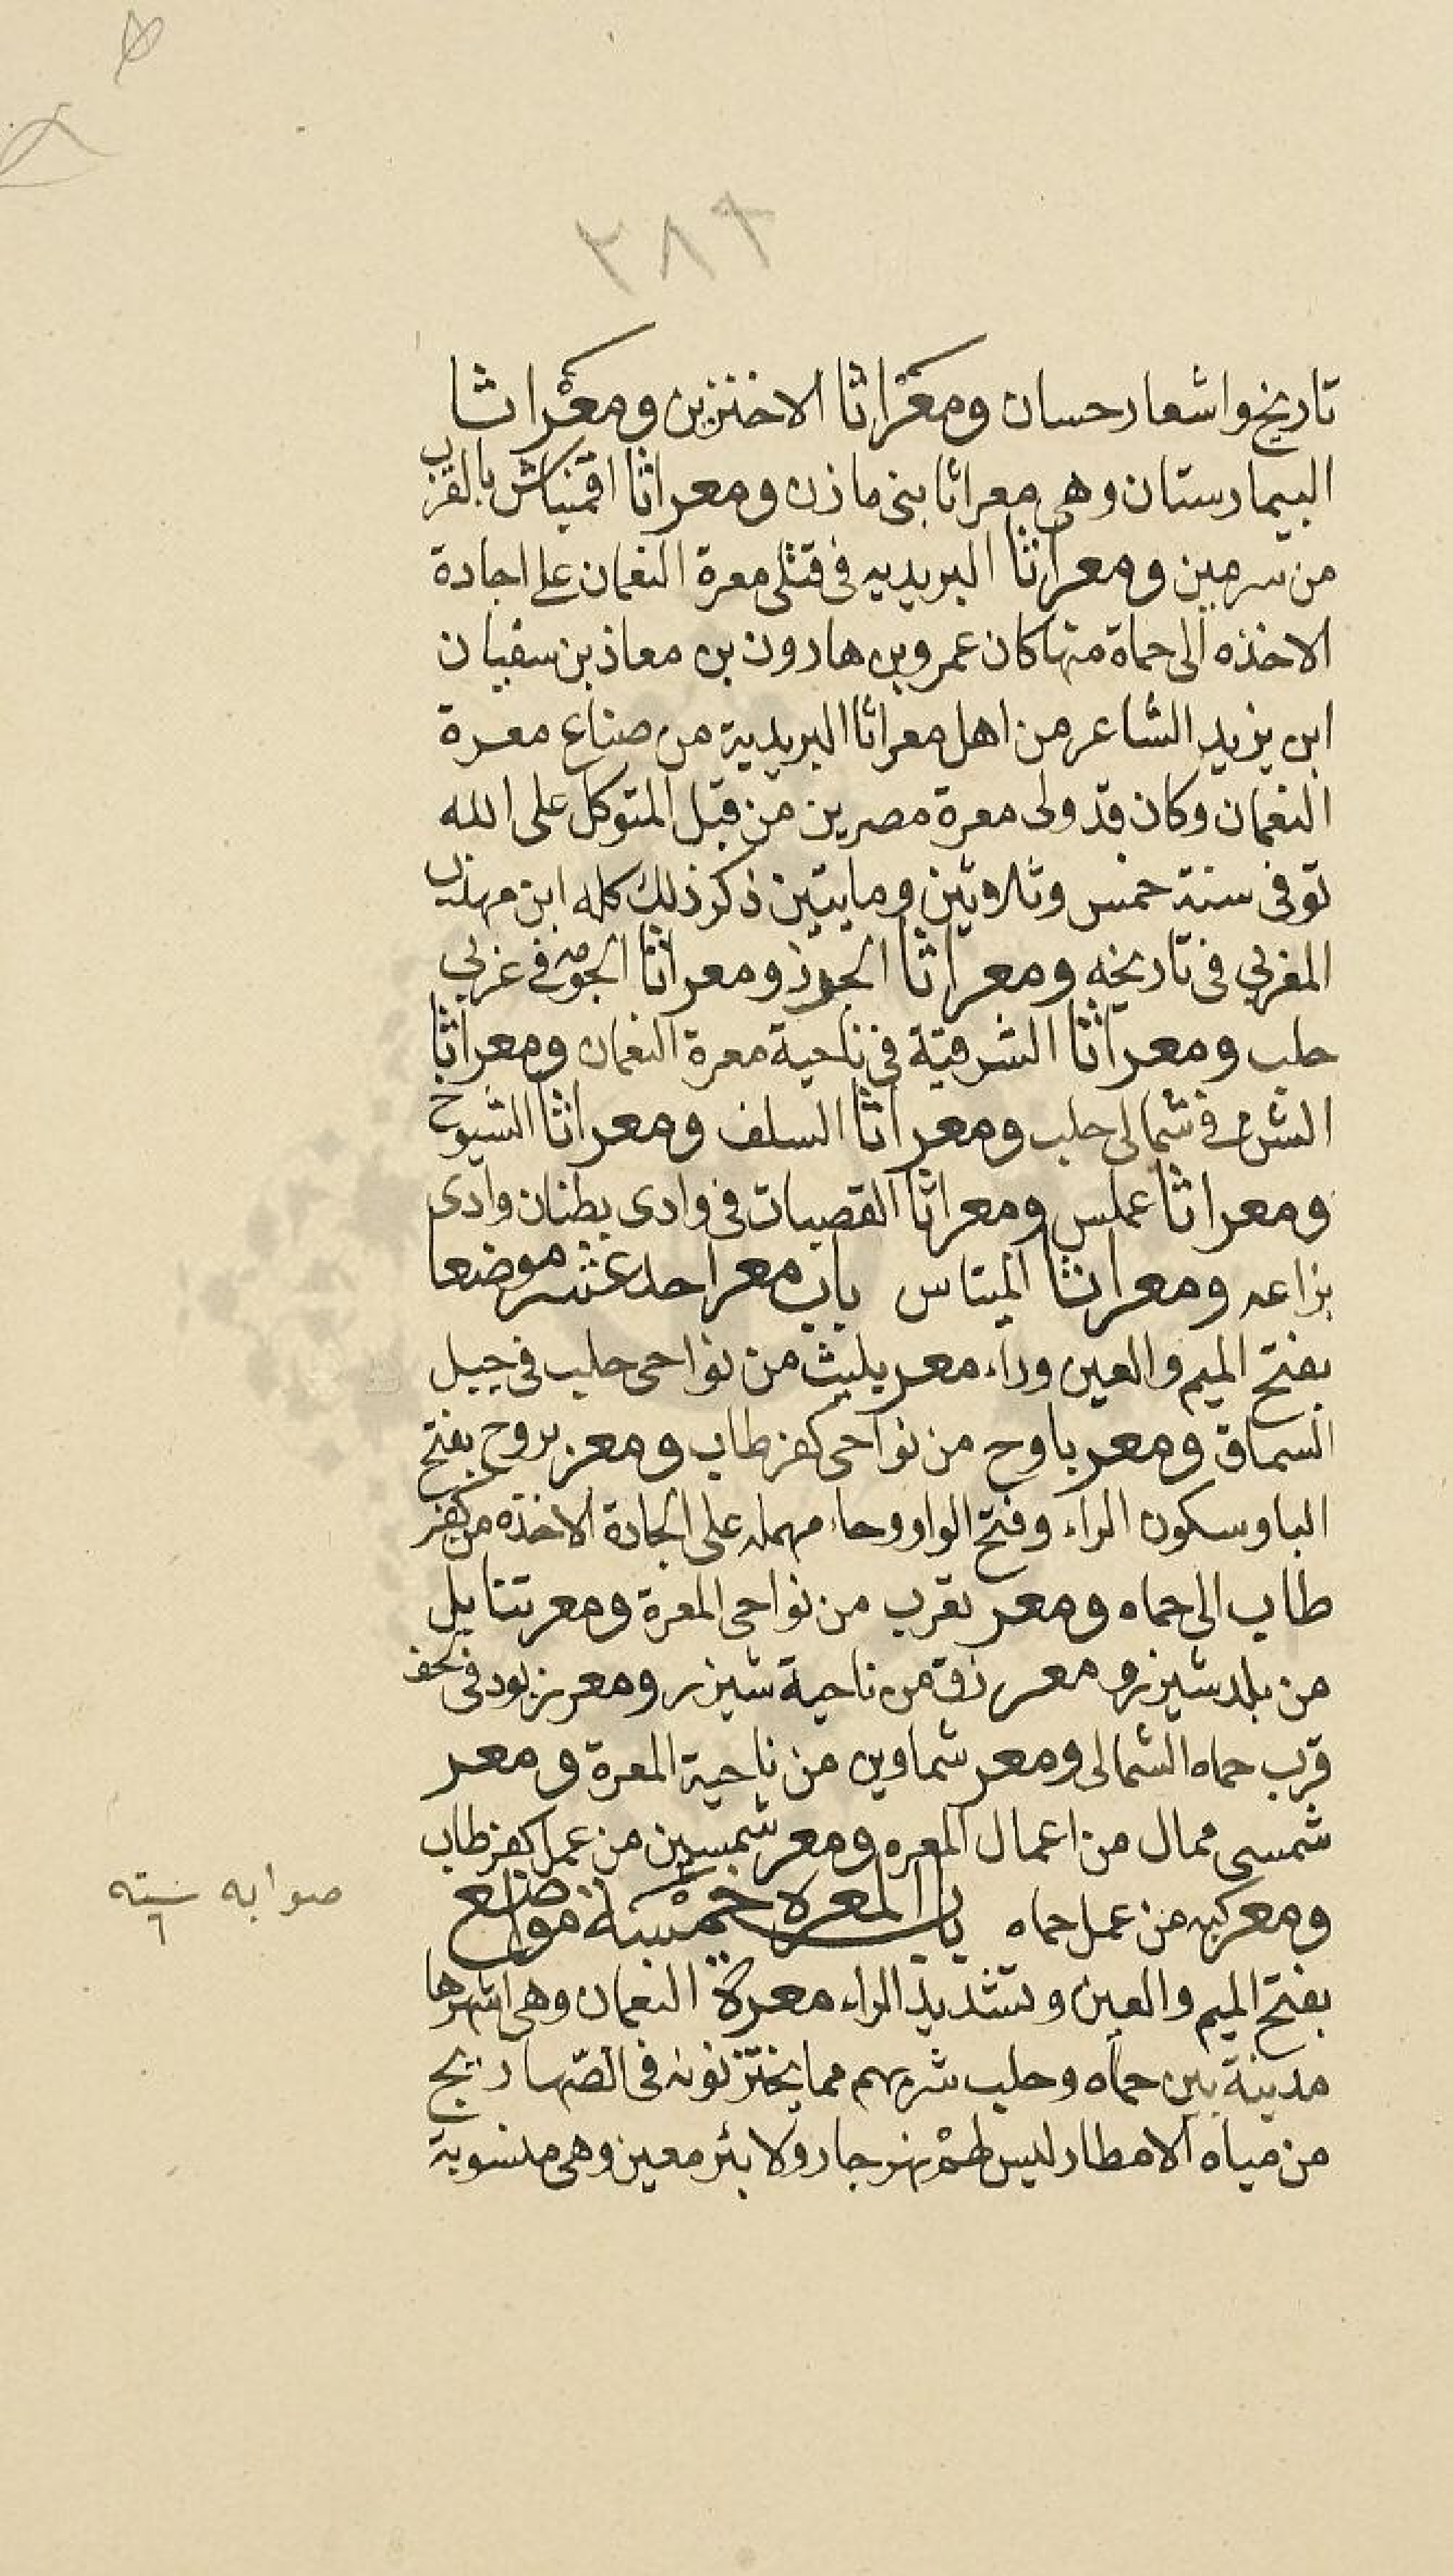 ٣٨٢
تاريخ واشعار حسان ومعراثا الاخنزين ومعراثا
البيمارستان وهى معراثا بنى مازن ومعراثا اقمنياش بالقرب
من سرمين ومعراثا البريديه فى قتلى معرة النعمان على اجادة
الاخذه الى حماة منها كان عمرو بن هارون بن معاذ بن سفيان
ابن يزيد الشاعر من اهل معراثا البريدية من صناع معرة
النعمان وكان قد ولى معرة مصرين من قبل المتوكل على الله
توفى سنة خمس وثلاوثين ومايتين ذكر ذلك كله ابن مهذب
المغربي فى تاريخه ومعراثا الجوز ومعراثا الجومه فى غربي
حلب ومعراثا الشرقية فى ناحية معرة النعمان ومعراثا
فى شمالى حلب ومعراثا السلف ومعراثا الشيوح
ومعراثا عملس ومعراثا القصيبات فى وادى بطنان وادى
بزاعه ومعراثا الميتاس باب معر احد عشر موضعا
بفتح الميم والعين وراء معر يليث من نواحى حلب فى جبل
السماق ومعر باوح من نواحى كفر طاب ومعر بروح بفتح
البا وسكون الراء وفتح الواو وحاء مهمله على الجادة الاخذه من كفر
طاب الى حماه ومعر بقرب من نواحى المعرة ومعر تتايل
من بلد شيزر ومعر زق من ناحية شيزر ومعر زبود فى لحف
قرب حماه الشمالى ومعر شماوين من ناحية المعرة ومعر
شمسى ممال من اعمال المعره ومعر شمسين من عمل كفر طاب
ومعر كبه من عمل حماه باب المعره خمسة مواضع
صوابه سته ٦
بفتح الميم والعين وتشديد الراء معرة النعمان وهى اشهرها
مدينة بين حماه وحلب شربهم مما يختزنونه فى الصهاريج
من مياه الامطار ليس لهم نهر جار ولا بئر معين وهى منسوبة